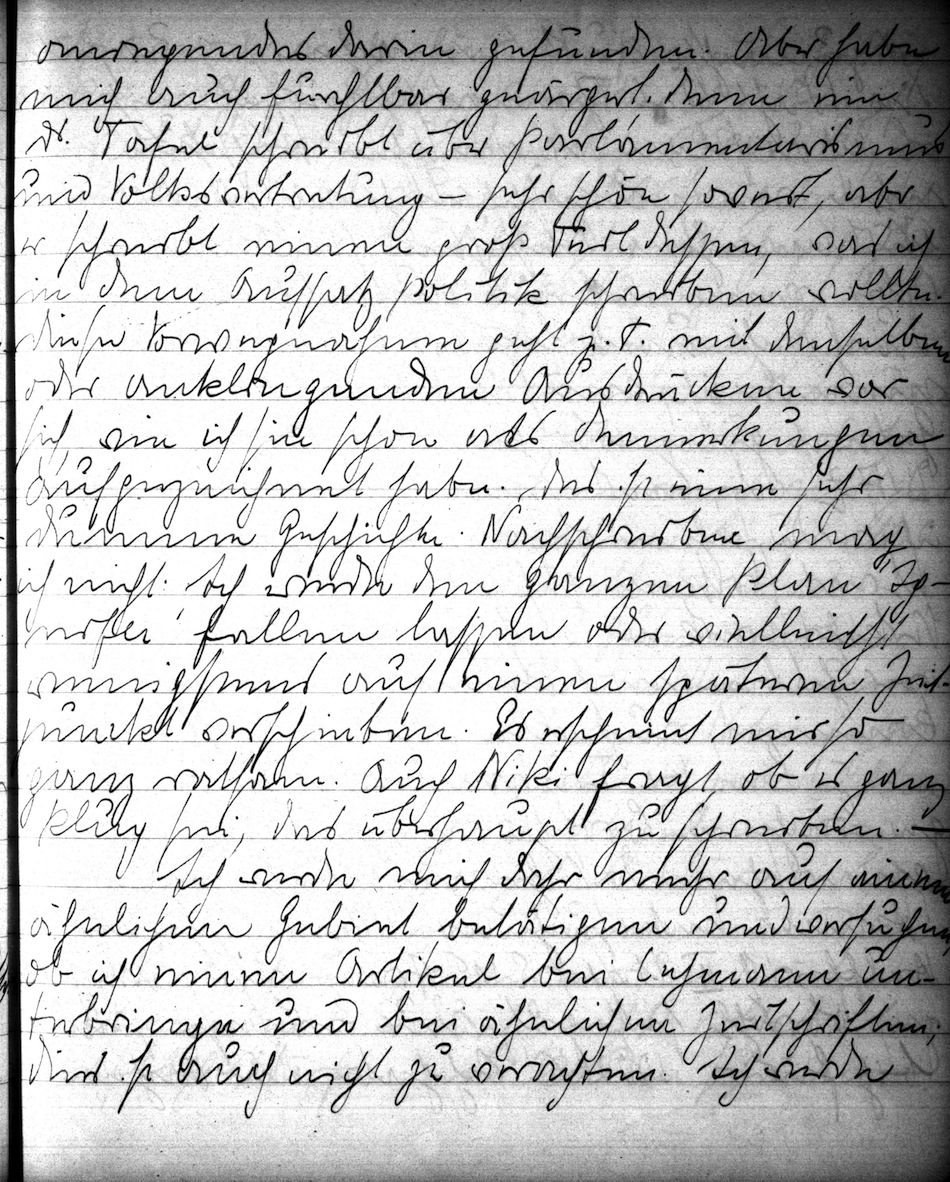 anregendes darin gefunden. Aber habe
mich auch furchtbar geärgert. denn ein
Dr. Tafel schreibt über Parlamentarismus
und Volksvertretung – sehr schön soweit, aber
er schreibt einen groß Teil dessen, was ich
in dem Aufsatz Politik schreiben wollte.
diese Vorwegnahme geht z. T. mit denselben
oder anklingenden Ausdrücken vor
sich, wie ich sie schon als Bemerkungen
aufgezeichnet habe. das ist eine sehr
dumme Geschichte. Nachschreiben mag
ich nicht. Ich werde den ganzen Plan
fallen lassen oder vielleicht
wenigstens auf einen späteren Zeit-
punkt verschieben. Es erscheint mir so
ganz ratsam. Auch Niki fragt, ob es ganz
klug sei, das überhaupt zu schreiben. —
Ich werde mich mehr auf einem
ähnlichen Gebiet betätigen und versuchen,
ob ich einen Artikel bei Lehmann un-
terbringe und bei ähnlichen Zeitschriften,
dies ist auch nicht zu verachten. Ich werde